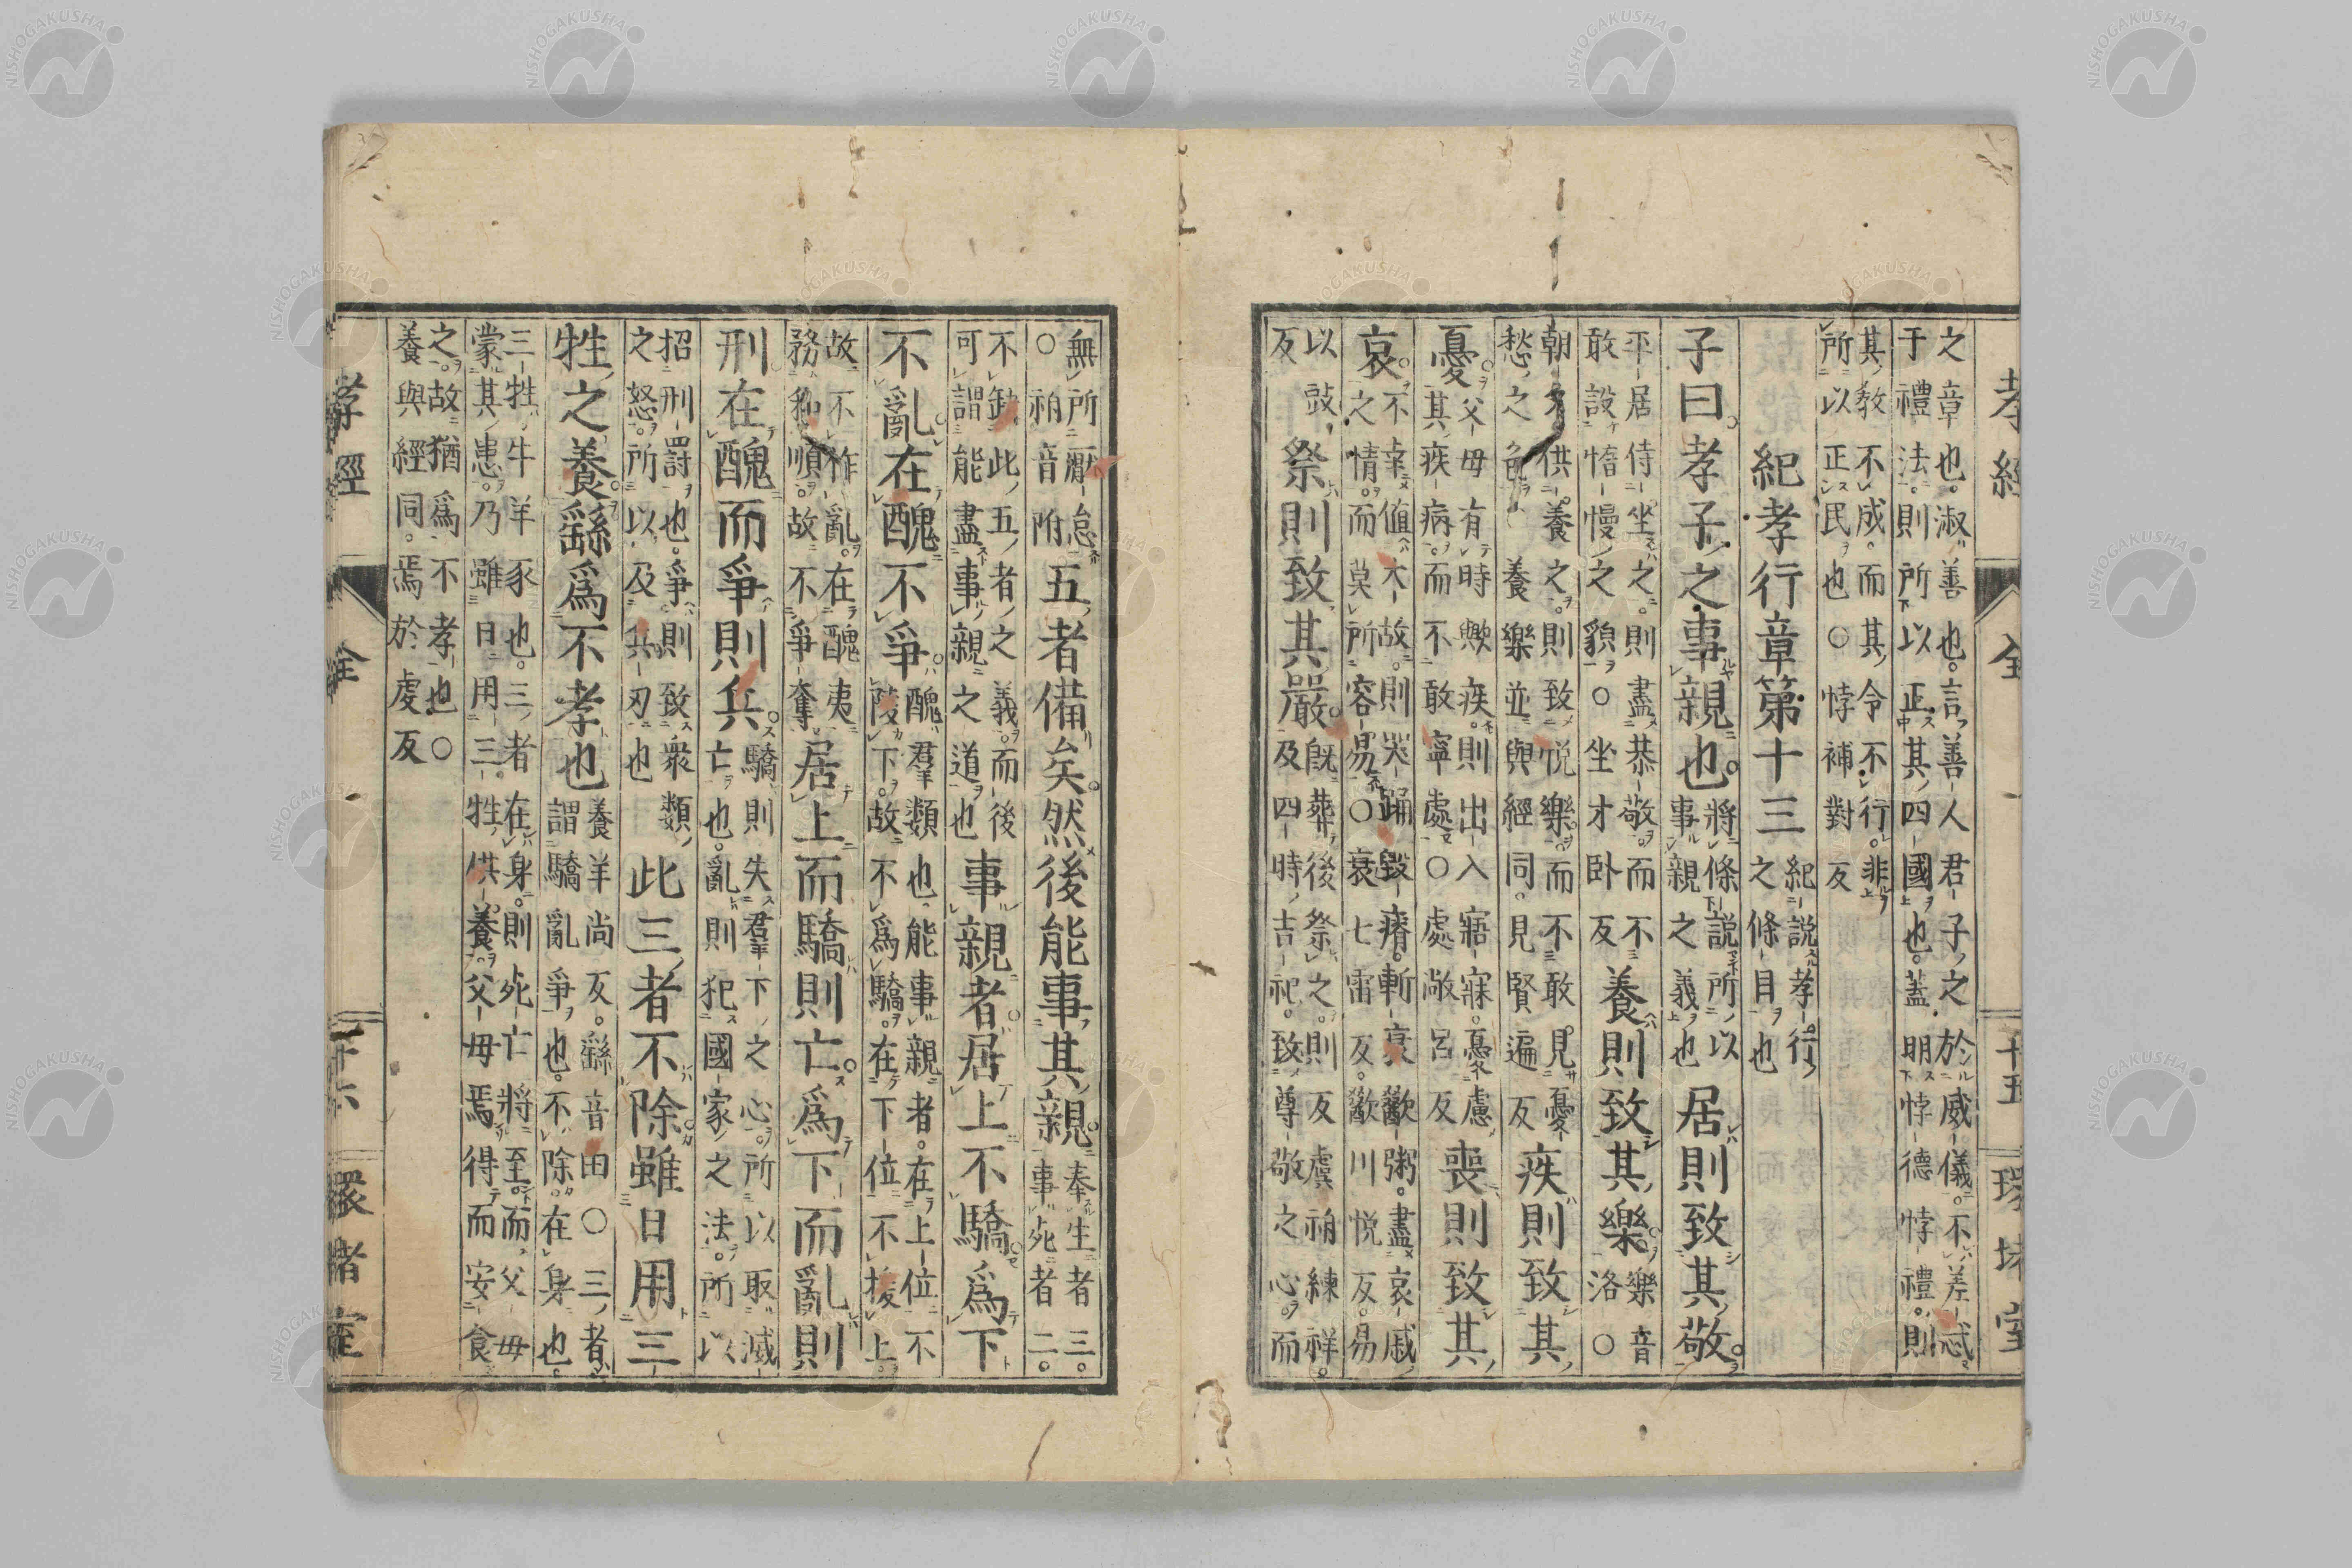 之章也。淑善也。言善人君子之於威儀。不差忒。
于禮法。則所以正其四國也。蓋明悖德悖禮。則
其教不成。而其令不行。非
所以正民也〇悖補對反
紀孝行章第十三
紀說孝行
之條目也
子曰孝子之事親也
將條說所以
事親之義也
居則致其敬
平居侍坐之。則盡恭敬而不
敢設惰慢之貌〇坐才臥反
養則致其樂
樂音
洛〇
朝夕供養之。則致悅樂。而不敢見憂
愁之色養樂並與經同。見賢遍反
疾則致其
憂
父母有時歟疾。則出入寤寐。憂慮
其疾病。而不敢寧處〇處敞呂反
喪則致其
哀
不幸值大故。則哭踊毀瘠。斬衰歠粥。盡哀戚
之情。而莫所容易〇衰七雷反。歠川悅反。易
以
豉
反
祭則致其嚴
旣葬後祭之。則反虞祔練祥。
及四時吉祀。致尊敬之心。而
無所厭怠
〇祔音附
五者備矣。然後能事其親
奉生者三。
事死者二。
不缺此五者之義。而後
可謂能盡事親之道也
事親者居上不驕。爲下
不亂在醜不爭
醜羣類也。能事親者。在上位不
陵下。故不爲驕。在下位不援上。
故不作亂。在醜夷
務和順。故不爭奪
居上而驕則亡。爲下而亂則
刑在醜而爭則兵
驕則失羣下之心。所以取滅
亡也。亂則犯國家之法。所以
招刑罰也。爭則致衆類
之怒。所以及兵刃也
此三者不除雖日用三
牲之養繇爲不孝也
養羊尚反。繇音由〇三者
謂驕亂爭也。不除在身也。
三牲牛羊豕也。三者在身。則死亡將至。而父母
蒙其患。乃雖日用三牲供養。父母焉得而安食
之。故猶爲不孝也〇
養與經同。焉於虔反
孝經
全
十五
環堵室
孝經
全
十六
環堵室
NISHOGAKUSHA